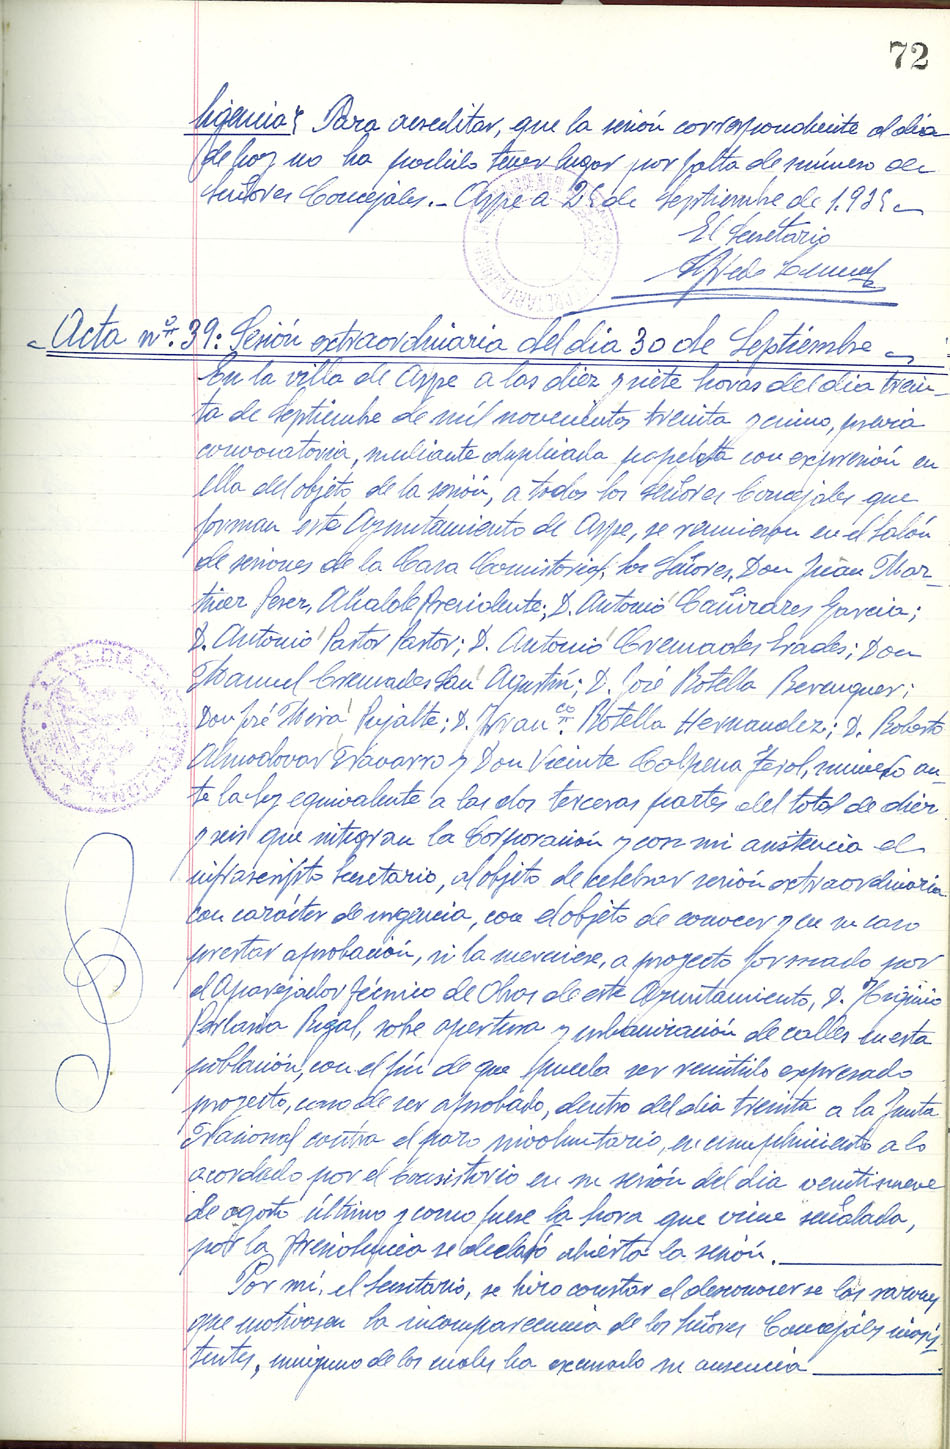 72
Diligencia: Para acreditar, que la sesión correspondiente al día
de hoy no ha podido tener lugar por falta de número de
Señores Concejales.- Aspe a 25 de septiembre de 1.935
El Secretario
Alfredo
Acta nº. 39: Sesión extraordinaria del día 30 de Septiembre
En la villa de Aspe a las diez y siete horas del día trein-
ta de Septiembre de mil novecientos treinta y cinco, previa
convocatoria, mediante duplicada papeleta con expresión en
ella del objeto de la sesión, a todos los Señores Concejales que
forman este Ayuntamiento de Aspe, se reunieron en el Salón
de sesiones de la Casa Consistorial, los Señores, Don Juan Mar-
tinez Perez, Alcalde Presidente; D. Antonio Cañizares Garcia;
D. Antonio Pastor Pastor; D. Antonio Cremades Prades; Don
Manuel Cremades San Agustín; D. José Botella Berenguer;
Don José Mira Pujalte; D. Fran.co Botella Hernandez; D. Roberto
Almodovar Navarro y Don Vicente Calpena Ferol, número an-
te la ley equivalente a las dos terceras partes del total de diez
y seis que integran la Corporación y con mi asistencia el
infrascripto Secretario, al objeto de celebrar sesión extraordinaria
con carácter de urgencia, con el objeto de conocer y en su caso
prestar aprobación, si la mereciese, a proyecto formado por
el Aparejador técnico de Obras de este Ayuntamiento, D. Higinio
Perlasia Rigal, sobre apertura y urbanización de calles en esta
población, con el fin de que pueda ser remitido expresado
proyecto, caso de ser aprobado, dentro del día treinta a la Junta
Nacional contra el paro involuntario, en cumplimiento a lo
acordado por el Consistorio en su sesión del día veintinueve
de agosto último y como fuese la hora que viene señalada,
por la Presidencia se declaró abierta la sesión.
Por mí, el Secretario, se hizo constar el desconocerse las razones
que motivasen la incomparecencia de los Señores Concejales inasis-
tentes, ninguno de los cuales ha excusado su ausencia